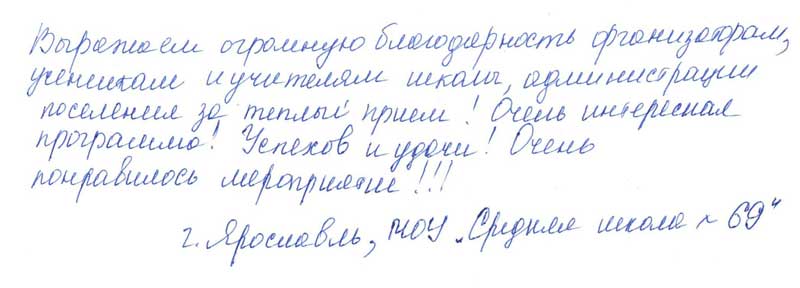 Выражаем огромную благодарность организаторам,
ученикам и учителям школы, администрации
поселения за теплый прием! Очень интересная
программа! Успехов и удачи! Очень
понравилось мероприятие!!!
г. Ярославль, МОУ „Средняя школа ~ 69"